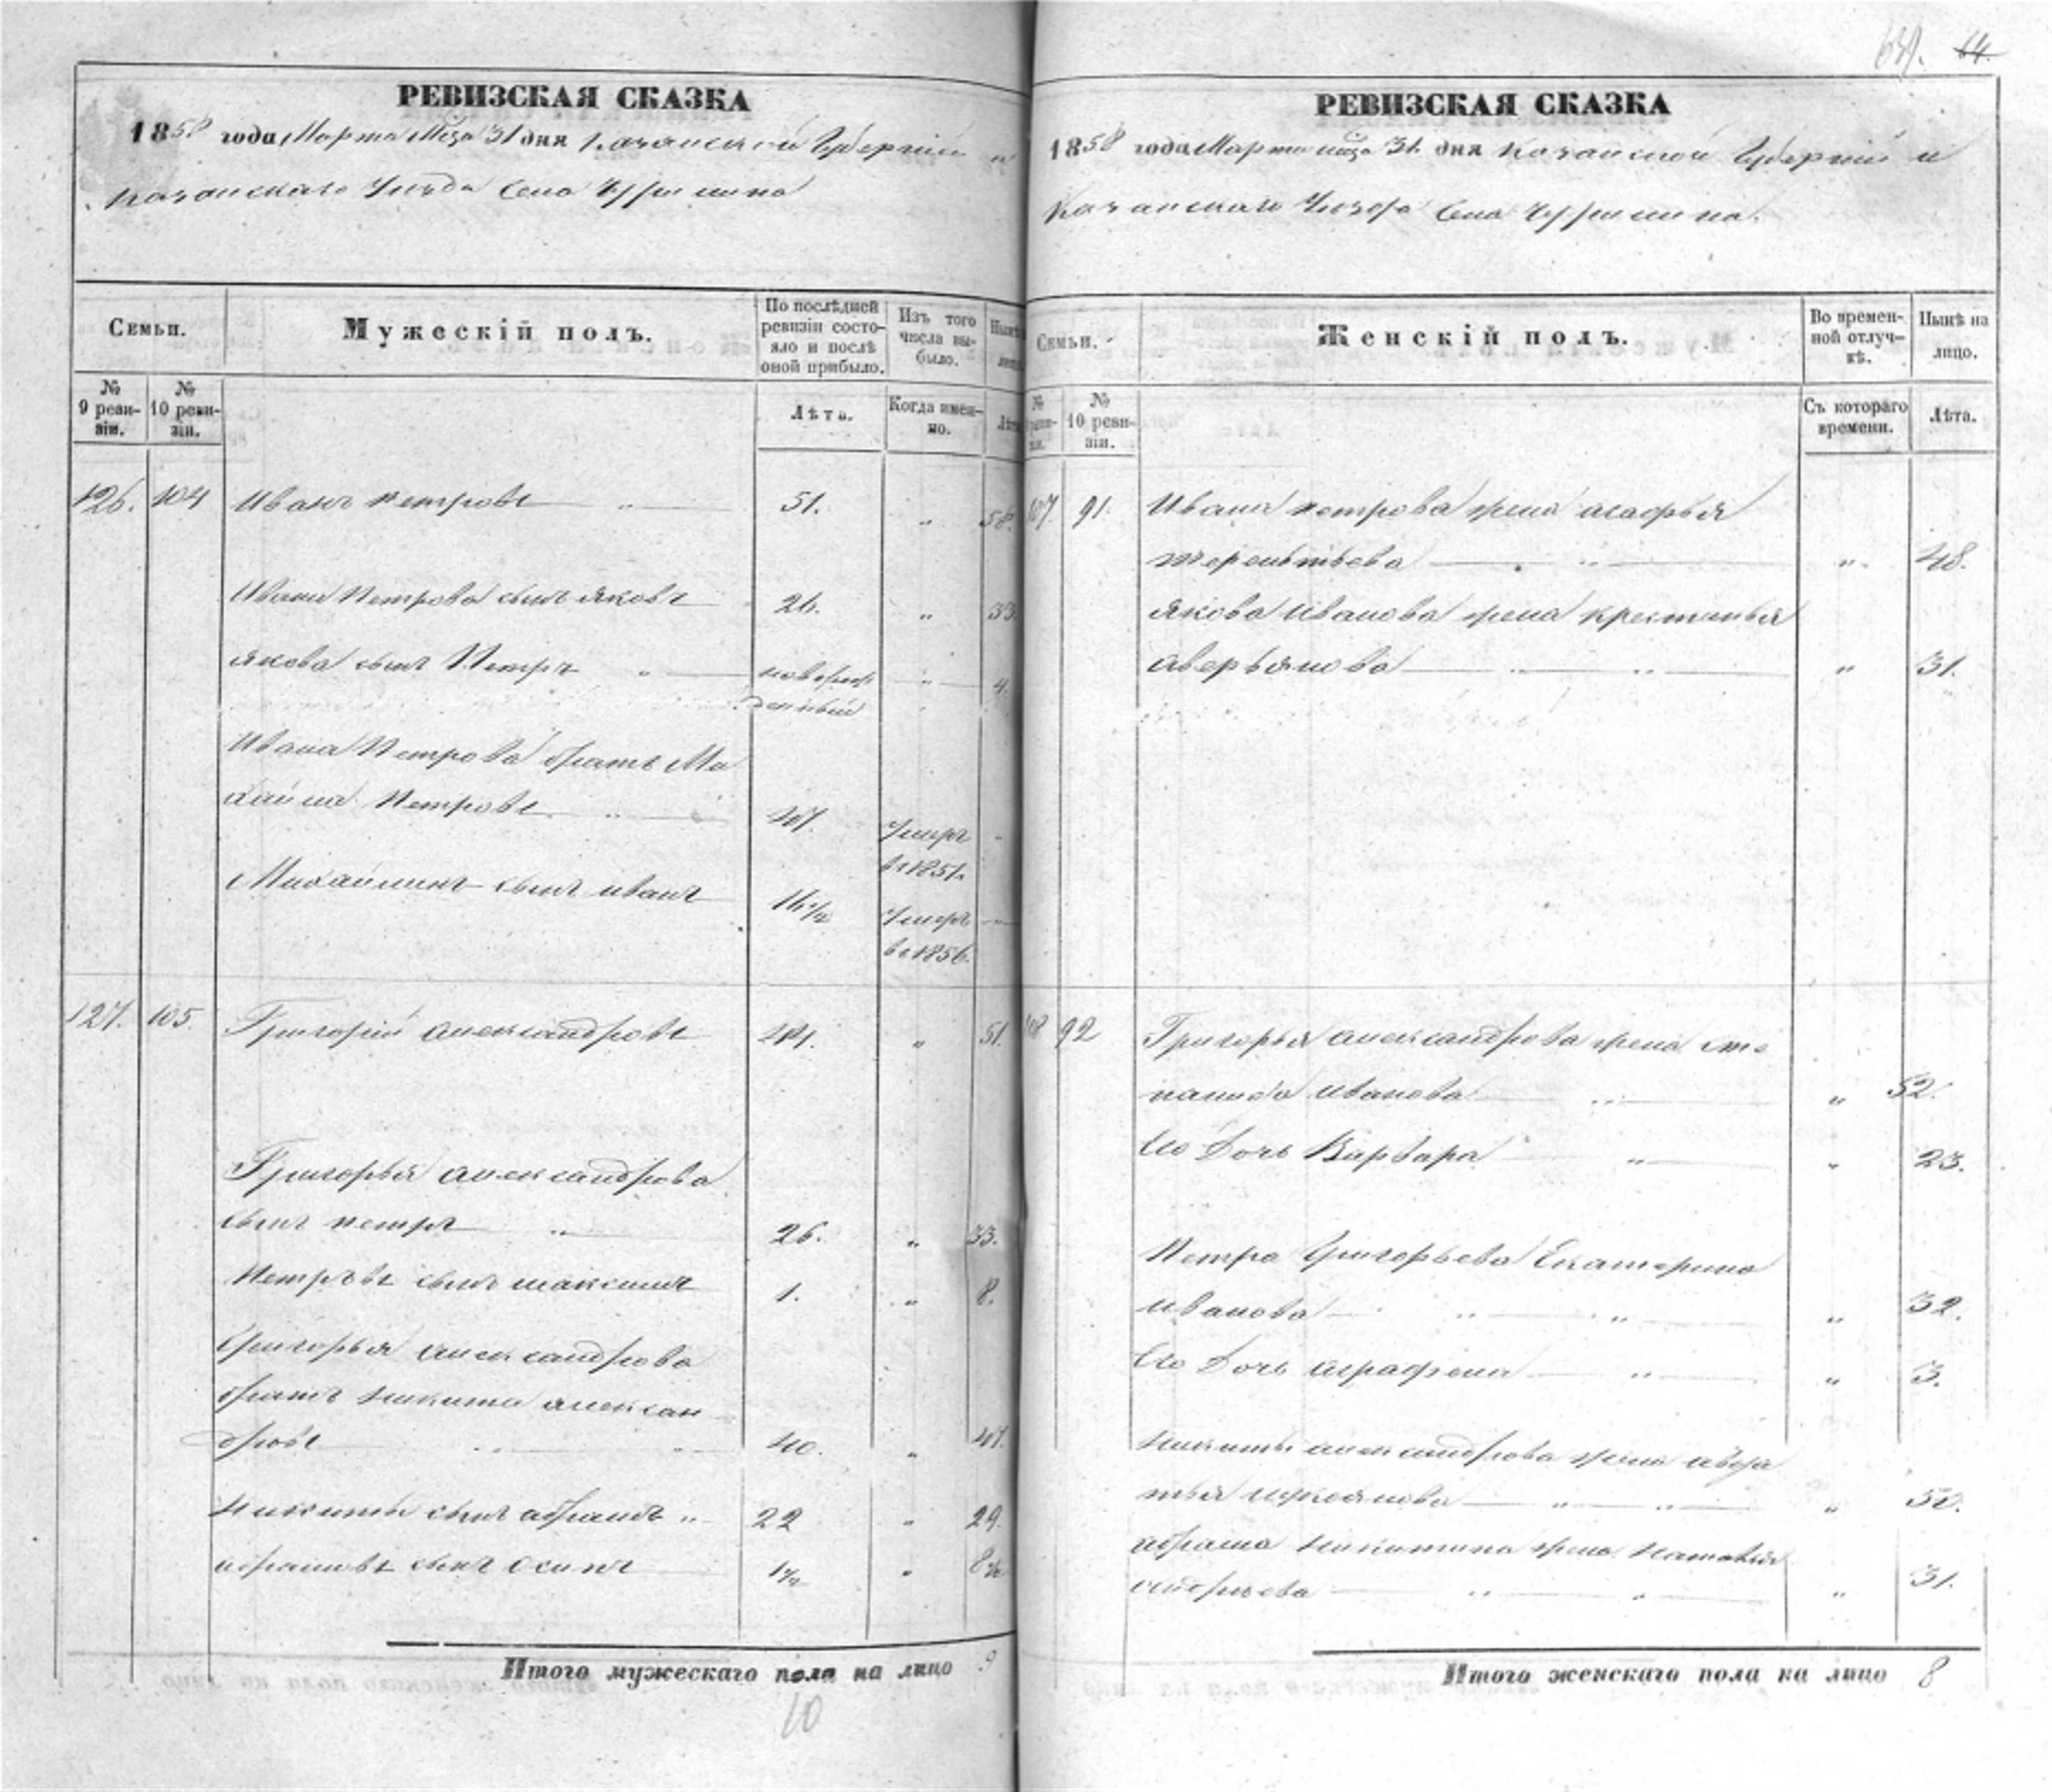 639. 64.
РЕВИЗСКАЯ СКАЗКА
1858 года Марта Мца 31 дня Казанской Губернии и
Казанского Уезда Села
Семьи.
Мужескій полъ.
По послѣдней ревизіи состо-
яло и послѣ
оной прибыло.
Изъ того
числа вы-
было.
№
9 реви-
зіи.
№
10 реви-
зіи.
Лѣта.
Когда имен-
но.
126. 104 Иванъ Петровъ 51. " 58.
Ивана Петрова сынъ Яковъ 26. " 33
Якова сынъ Петръ новорож " 4.
денный
Ивана Петрова братъ Ми
хаила Петровъ 47. умеръ
въ 1851.
сынъ Иванъ 16 1/4 умеръ
въ 1856.
127. 105 Григорій Александровъ 44. " 51.
Григорья Александрова
сынъ Петръ 26. " 33.
Петровъ сынъ Максимъ 1. " 8.
Григорья Александрова
братъ Никита Алексан
дровъ 40. " 47.
Никиты сынъ Абрамъ 22 " 29.
Абрамовъ сынъ Осипъ 1 1/4 "
Итого мужескаго пола на лицо 9
10
РЕВИЗСКАЯ СКАЗКА
1858 года Марта мца 31 дня Казанской Губерніи и
Казанскаго Уезда Села
Семьи.
Женскій полъ.
Во времен-
ной отлуч-
кѣ.
Нынѣ на
лицо.
№
10 реви-
зіи.
Съ котораго
времени.
Лѣта.
107. 91. Ивана Петрова жена Агафья
Терентьева " 48.
Якова Иванова жена
Аверьянова " 31.
92 Григорья Александрова жена Сте
панида Иванова " 52.
Его Дочь Варвара " 23.
Петра Григорьева Екатерина
Иванова " 32.
Его Дочь Аграфена " 3.
Никиты Александрова жена Авдо
тья " 50.
Абрама Никитина жена Наталья
" 31.
Итого женскаго пола на лицо 8